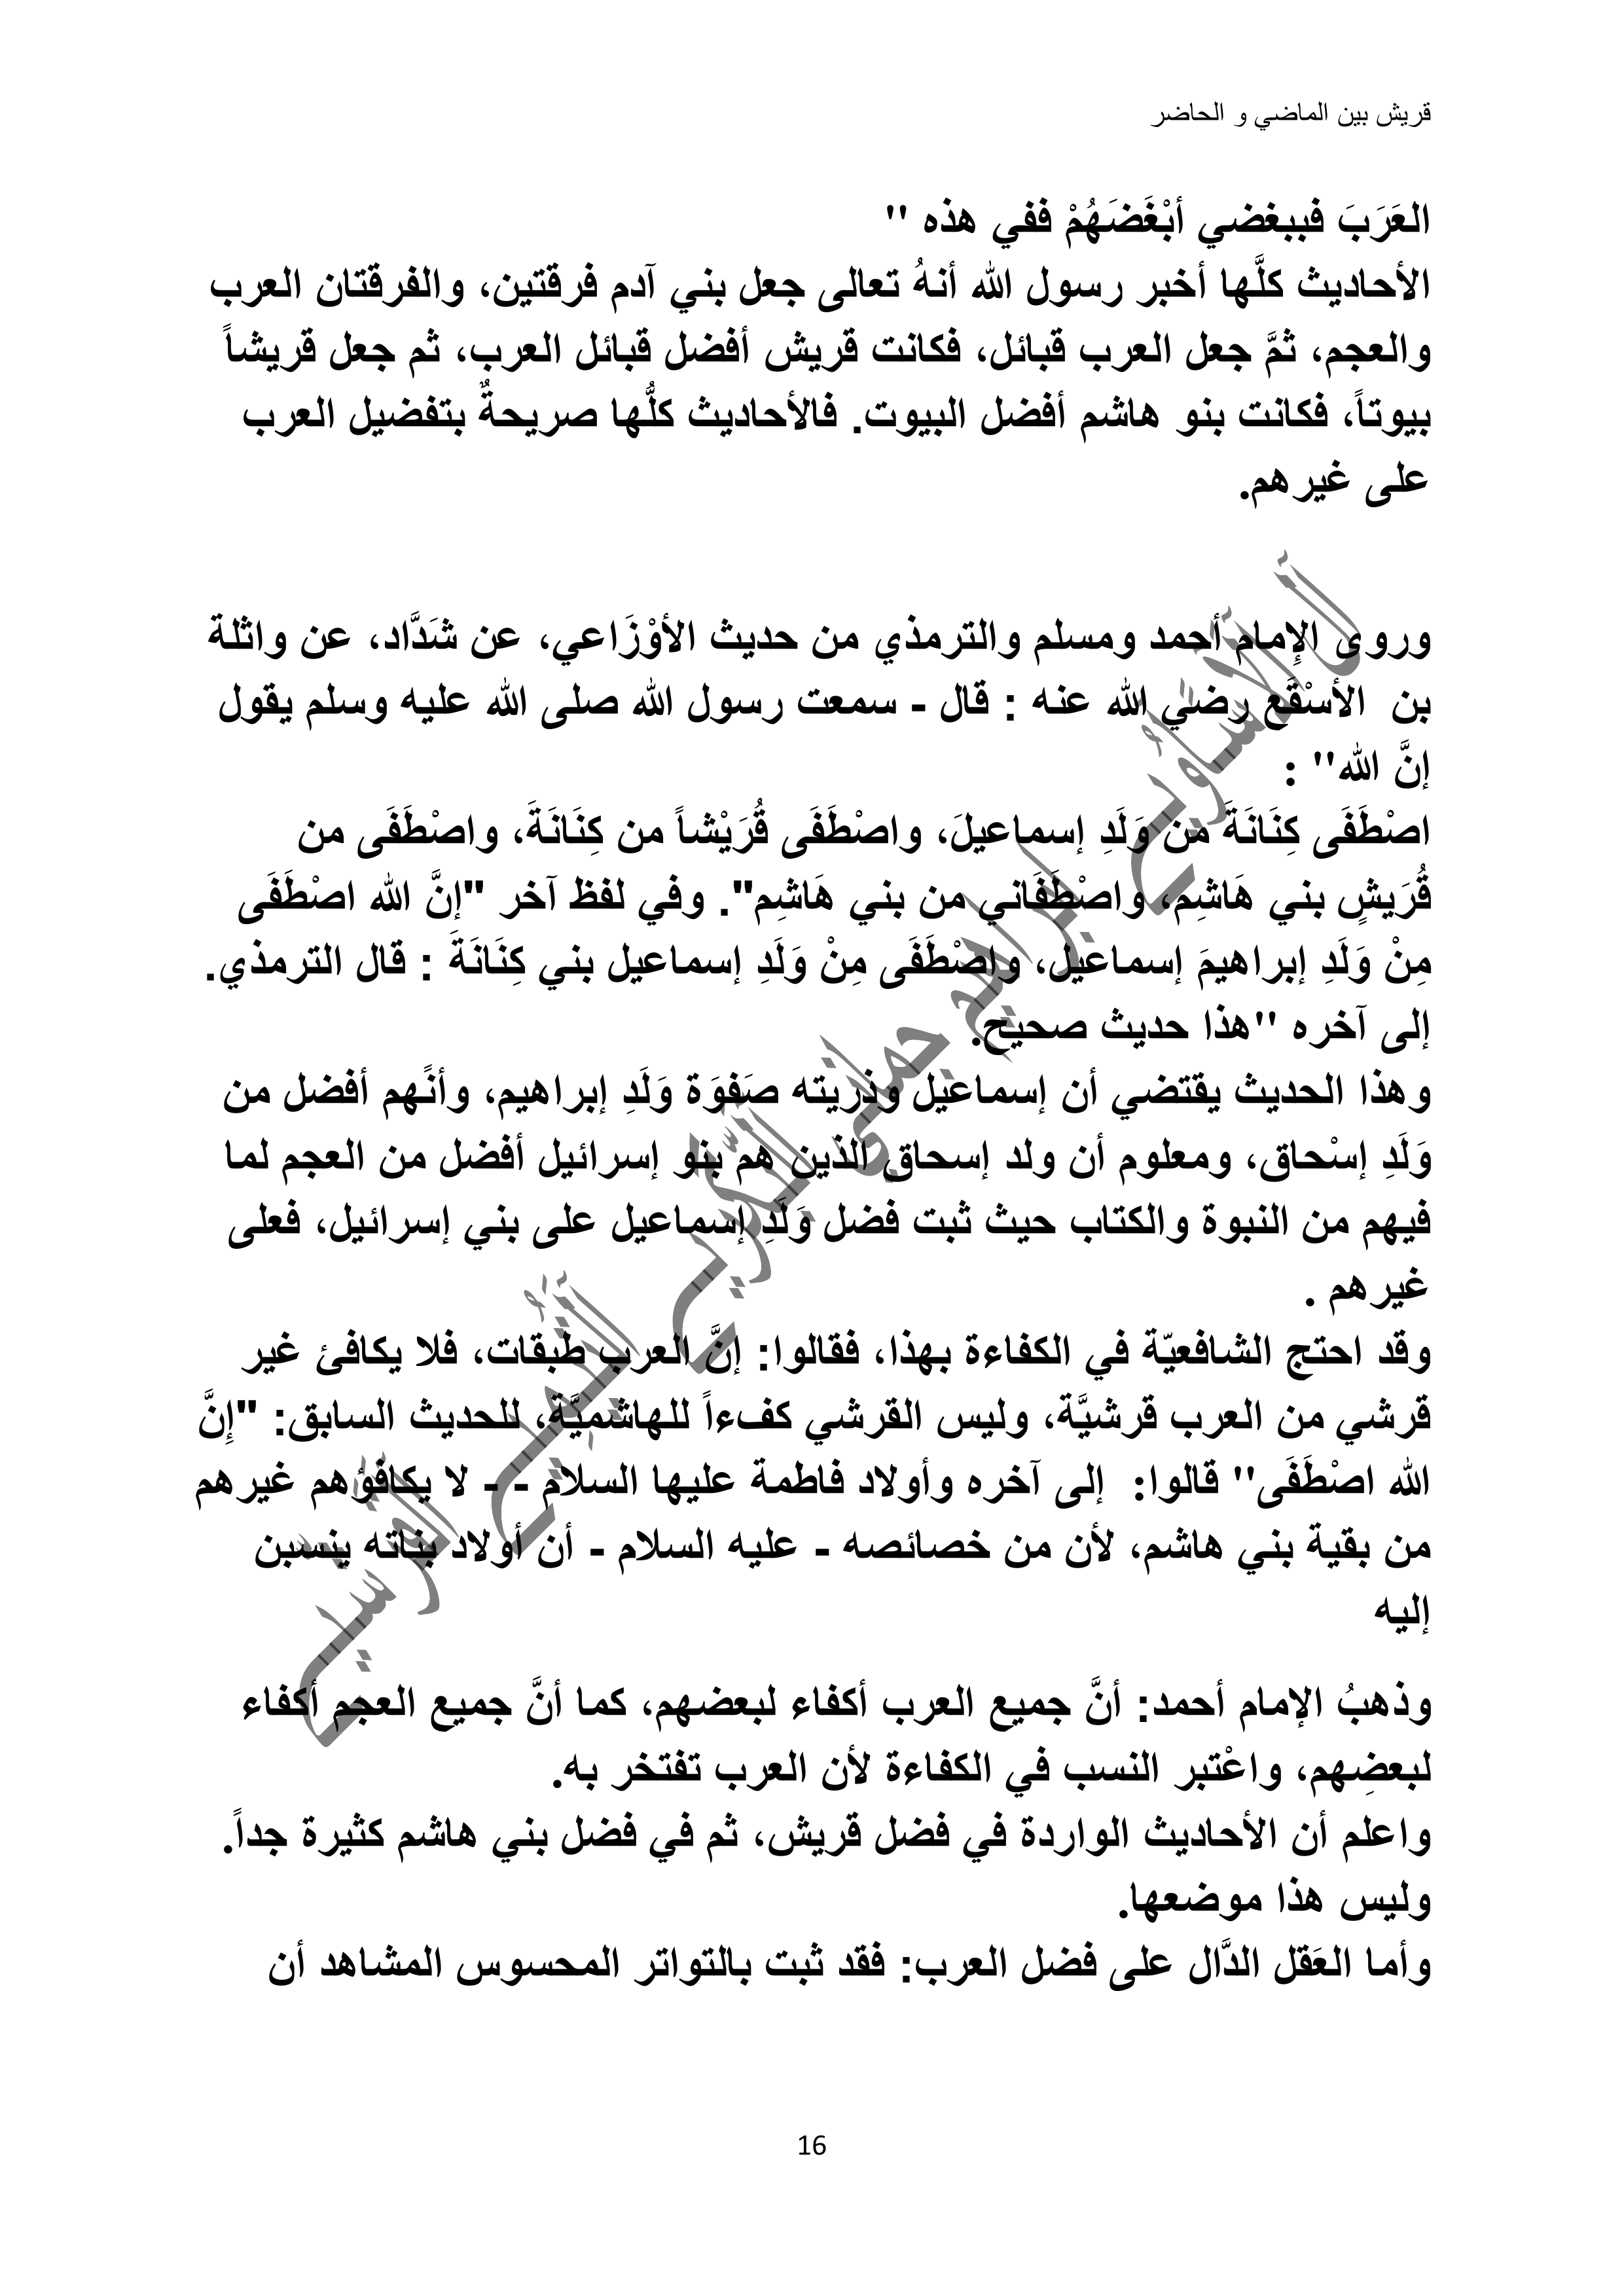 قريش بين الماضي و الحاضر
العَرَبَ فببغضي أبْغَضَهُمْ ففي هذه "
الأحاديث كلَّها أخبر رسول الله أنهُ تعالى جعل بني آدم فرقتين، والفرقتان العرب
والعجم، ثمَّ جعل العرب قبائل، فكانت قريش أفضل قبائل العرب، ثم جعل قريشاً
بيوتاً، فكانت بنو هاشم أفضل البيوت. فالأحاديث كلُّها صريحةٌ بتفضيل العرب
على غيرهم.
وروى الإِمام أحمد ومسلم والترمذي من حديث الأوْزَاعي، عن شَدَّاد، عن واثلة
بن الأسْقَع رضي الله عنه : قال - سمعت رسول الله صلى الله عليه وسلم يقول
إنَّ الله" :
اصْطَفَى كِنَانَةَ من وَلَدِ إسماعيلَ، واصْطَفَى قُرَيْشاً من كِنَانَةَ، واصْطَفَى من
قُرَيشٍ بني هَاشِم، واصْطَفَاني من بني هَاشِم". وفي لفظ آخر "إنَّ الله اصْطَفَى
مِنْ وَلَدِ إبراهيمَ إسماعيل، واصْطَفَى مِنْ وَلَدِ إسماعيل بني كِنَانَةَ : قال الترمذي.
إلى آخره "هذا حديث صحيح.
وهذا الحديث يقتضي أن إسماعيل وذريته صَفوَة وَلَدِ إبراهيم، وأنًهم أفضل من
وَلَدِ إسْحاق، ومعلوم أن ولد إسحاق الذين هم بنو إسرائيل أفضل من العجم لما
فيهم من النبوة والكتاب حيث ثبت فضل وَلَدِ إسماعيل على بني إسرائيل، فعلى
غيرهم .
وقد احتج الشافعيّة في الكفاءة بهذا، فقالوا: إنَّ العرب طبقات، فلا يكافئ غير
قرشي من العرب قرشيَّة، وليس القرشي كفءاً للهاشميَّة، للحديث السابق: "إِنَّ
الله اصْطَفَى" قالوا: إلى آخره وأولاد فاطمة عليها السلام - - لا يكافؤهم غيرهم
من بقية بني هاشم، لأن من خصائصه - عليه السلام - أن أولاد بناته ينسبن
إليه
وذهبُ الإمام أحمد: أنَّ جميع العرب أكفاء لبعضهم، كما أنَّ جميع العجم أكفاء
لبعضِهم، واعْتبر النسب في الكفاءة لأن العرب تفتخر به.
واعلم أن الأحاديث الواردة في فضل قريش، ثم في فضل بني هاشم كثيرة جداً.
وليس هذا موضعها.
وأما العَقل الدَّال على فضل العرب: فقد ثبت بالتواتر المحسوس المشاهد أن
16